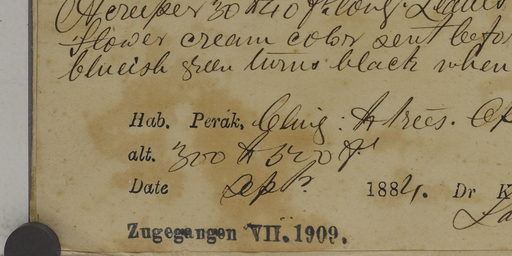 A creeper 30 to 40 ft. long. Leaves
flower cream color sent befor
blueish green turns black when
Hab. Perak. Cling: to trees. Op
alt. 300 to 520 ft
Date Apl. 1884. Dr K
Zugegangen VII. 1909.